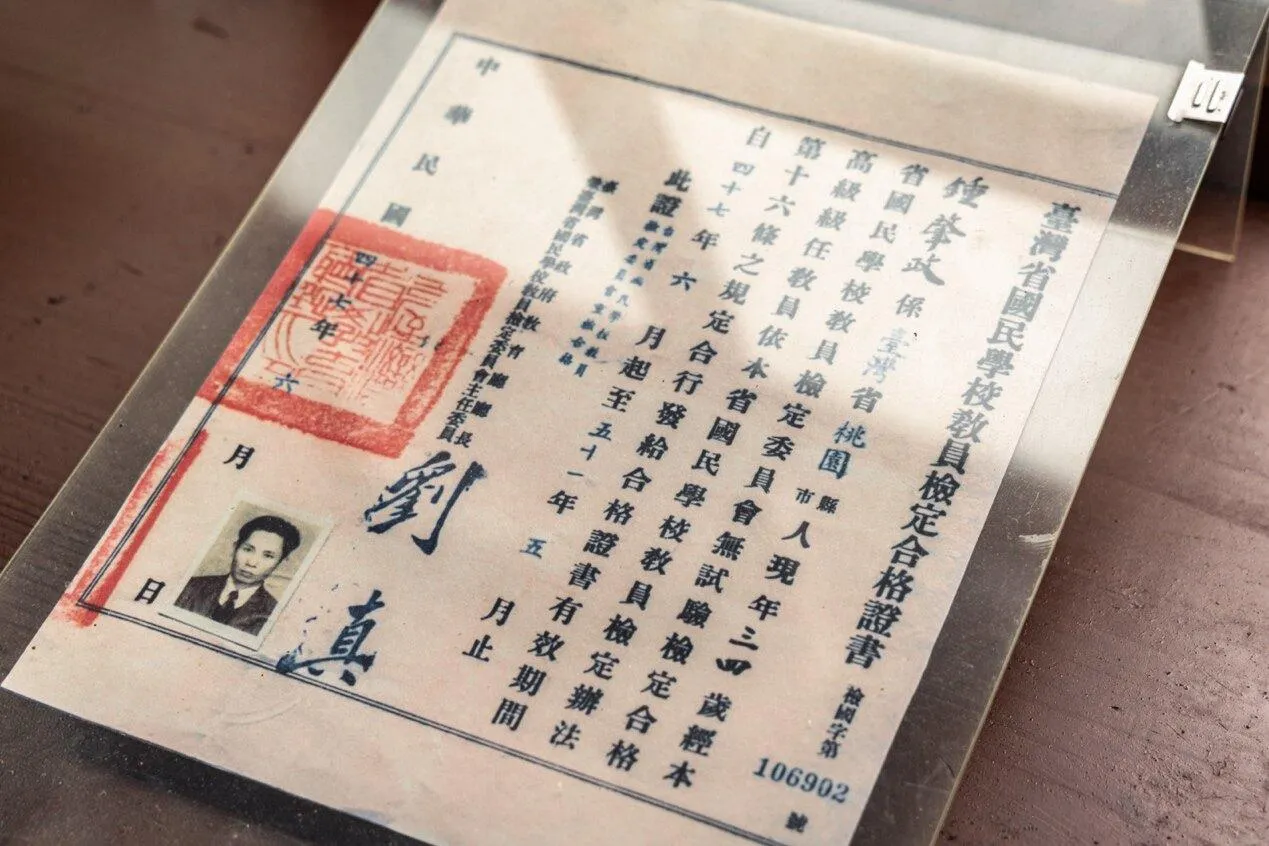 臺灣省國民學校敎員檢定合格證書
檢國字第106902號
鍾肇政係臺灣省桃園縣市人現年三四歲經本
省國民學校敎員檢定委員會無試驗檢定合格
高級級任敎員依本省國民學校敎員檢定辦法
第十六條之規定合行發給合格證書有效期間
自四十七年六月起至五十一年五月止
此證
台灣省國民學校敎員
檢定委員會重檢合格
臺灣省政府敎育廳廳長
臺灣省國民學校敎員檢定委員會主任委員
劉真
中華民國四十七年六月日